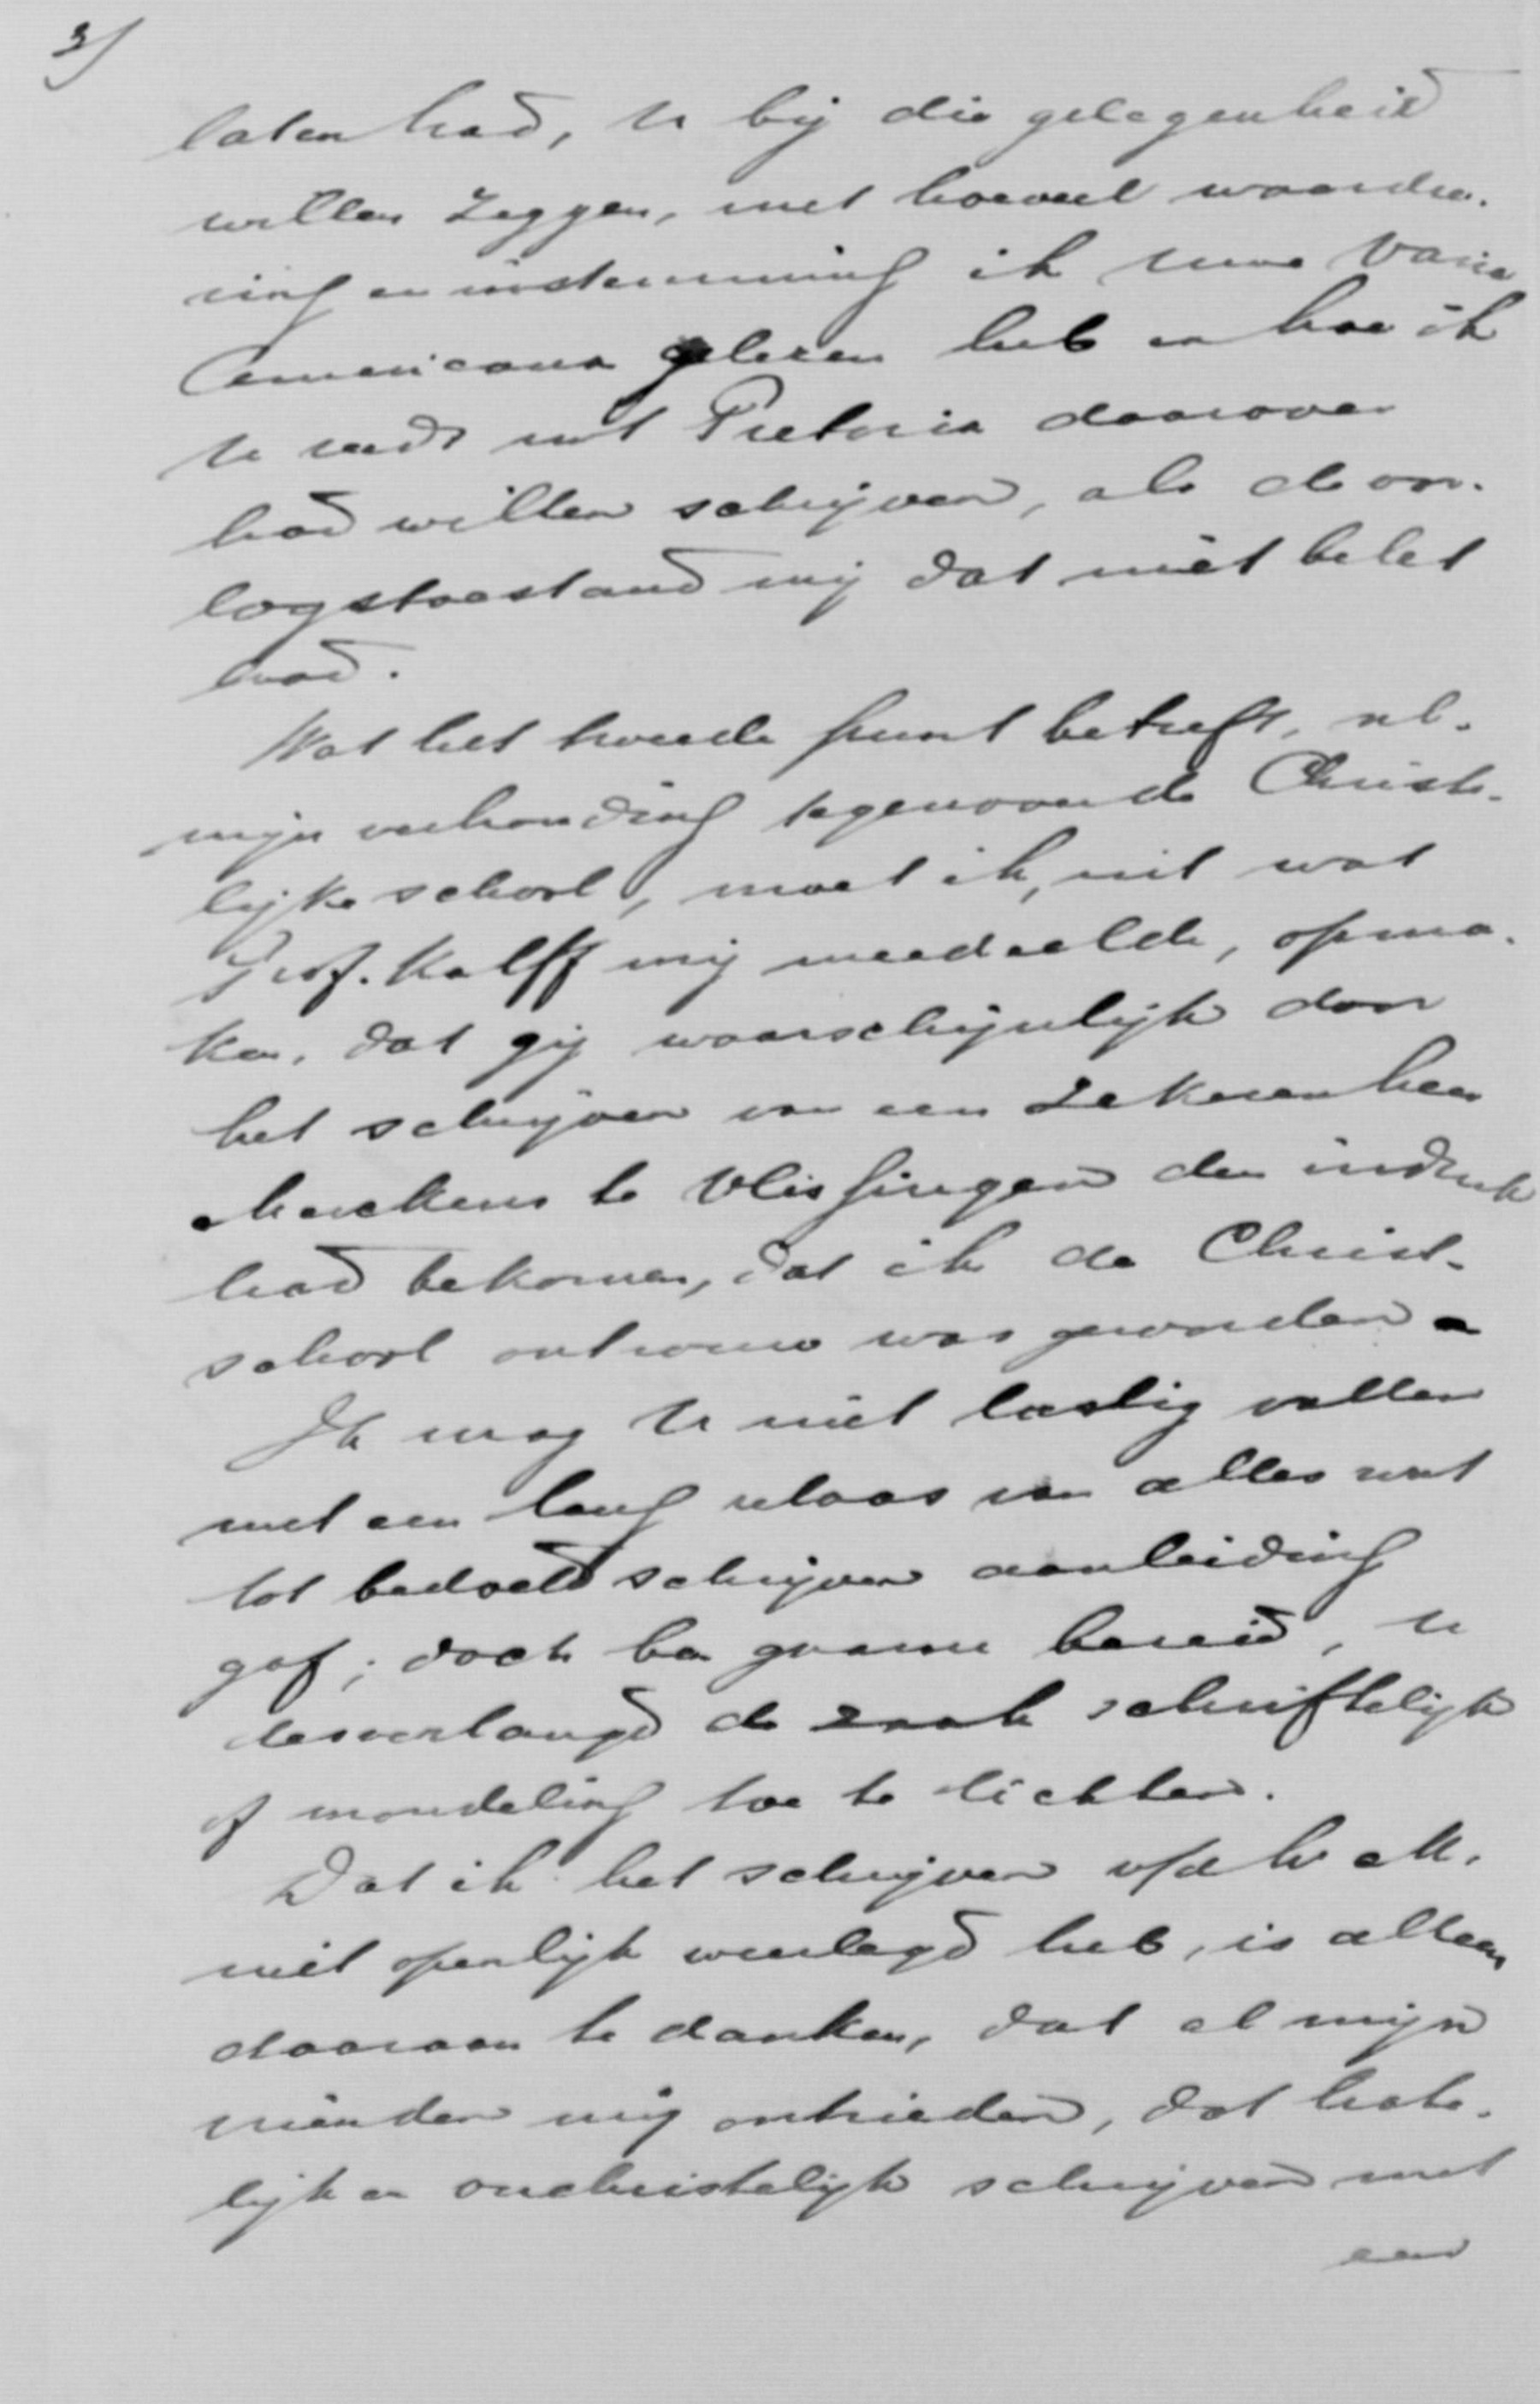 3/
laten had, U bij die gelegenheid
willen zeggen, met hoeveel waardee-
ring en instemming ik uwe Varia
Americana gelezen heb en hoe ik
U reeds uit Pretoria daarover
had willen schrijven, als de oor-
logstoestand mij dat niet belet
had.
Wat het tweede punt betreft, nl.
mijn verhouding tegenover de Christe-
lijke school, moet ik, uit wat
Prof. Kalff mij meedeelde, opma-
ken, dat gij waarschijnlijk door
het schrijven van een zekeren heer
te Vlissingen den indruk
had bekomen, dat ik de Christ.
school ontrouw was geworden.
Ik mag U niet lastig vallen
met een lang relaas van alles wat
tot bedoeld schrijven aanleiding
gaf; doch ben gaarne bereid, U
desverlangd de zaak schriftelijk
of mondeling toe te lichten.
Dat ik het schrijven v/d hr M.
niet openlijk weerlegd heb, is alleen
daaraan te danken, dat al mijn
vrienden mij ontrieden, dat hate-
lijk en onchristelijk schrijven met
een